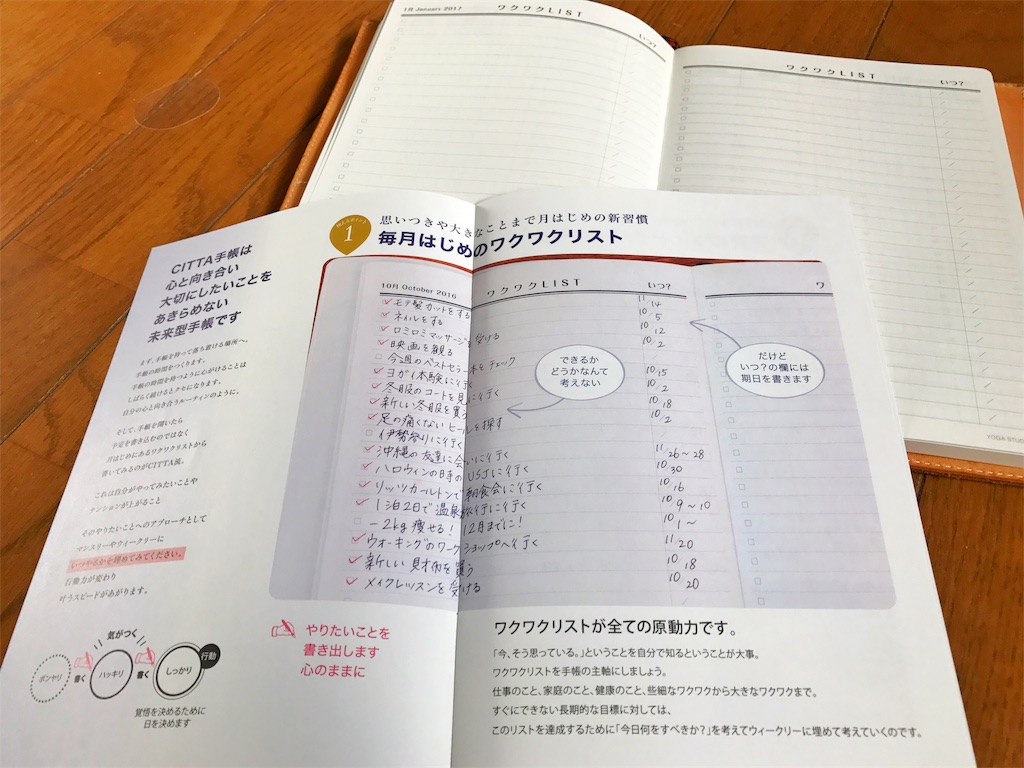 1月 January 2017
ワクワクLIST
いつ?
ワクワクLIST
いつ?
YOGA STU
1
思いつきや大きなことまで月はじめの新習慣
毎月はじめのワクワクリスト
CITTA手帳は
心と向き合い
大切にしたいことを
あきらめない
未来型手帳です
まず、手帳を持って落ち着ける場所へ。
手帳の時間をつくります。
手帳の時間を持つように心がけることは
しばらく続けるとクセになります。
自分の心と向き合うルーティンのように、
そして、手帳を開いたら
予定を書き込むのではなく
月はじめにあるワクワクリストから
書いてみるのがCITTA流。
これは自分がやってみたいことや
テンションが上がること
そのやりたいことへのアプローチとして
マンスリーやウィークリーに
いつやるかを埋めてみてください。
行動力が変わり
叶うスピードがあがります。
気がつく
ボンヤリ
書く
ハッキリ
書く
しっかり
行動
覚悟を決めるために
日を決めます
10月 October 2016
ワクワクLIST
いつ?
ワ
モテ髪カットをする 11/14
ネイルをする 10/5
ロミロミマッサージを受ける 10/12
映画を観る 10/2
今週のベストセラー本をチェック
ヨガ体験に行く 10/15
冬服のコートを見に行く 10/2
新しい冬服を買う 10/18
足の痛くないヒールを探す 10/2
伊勢参りに行く
沖縄の友達に会いに行く 11/26~28
ハロウィンの日時のUSJに行く 10/30
リッツカールトンで朝食会に行く 10/16
1泊2日で温泉旅行に行く 10/9~10
-2kg痩せる!12月までに! 10/1~
ウォーキングのワークショップへ行く 11/20
新しい財布を買う 10/18
メイクレッスンを受ける 10/20
できるか
どうかなんて
考えない
だけど
いつ?の欄には
期日を書きます
やりたいことを
書き出します
心のままに
ワクワクリストが全ての原動力です。
「今、そう思っている。」ということを自分で知るということが大事。
ワクワクリストを手帳の主軸にしましょう。
仕事のこと、家庭のこと、健康のこと、些細なワクワクから大きなワクワクまで。
すぐにできない長期的な目標に対しては、
このリストを達成するために「今日何をすべきか?」を考えてウィークリーに埋めて考えていくのです。